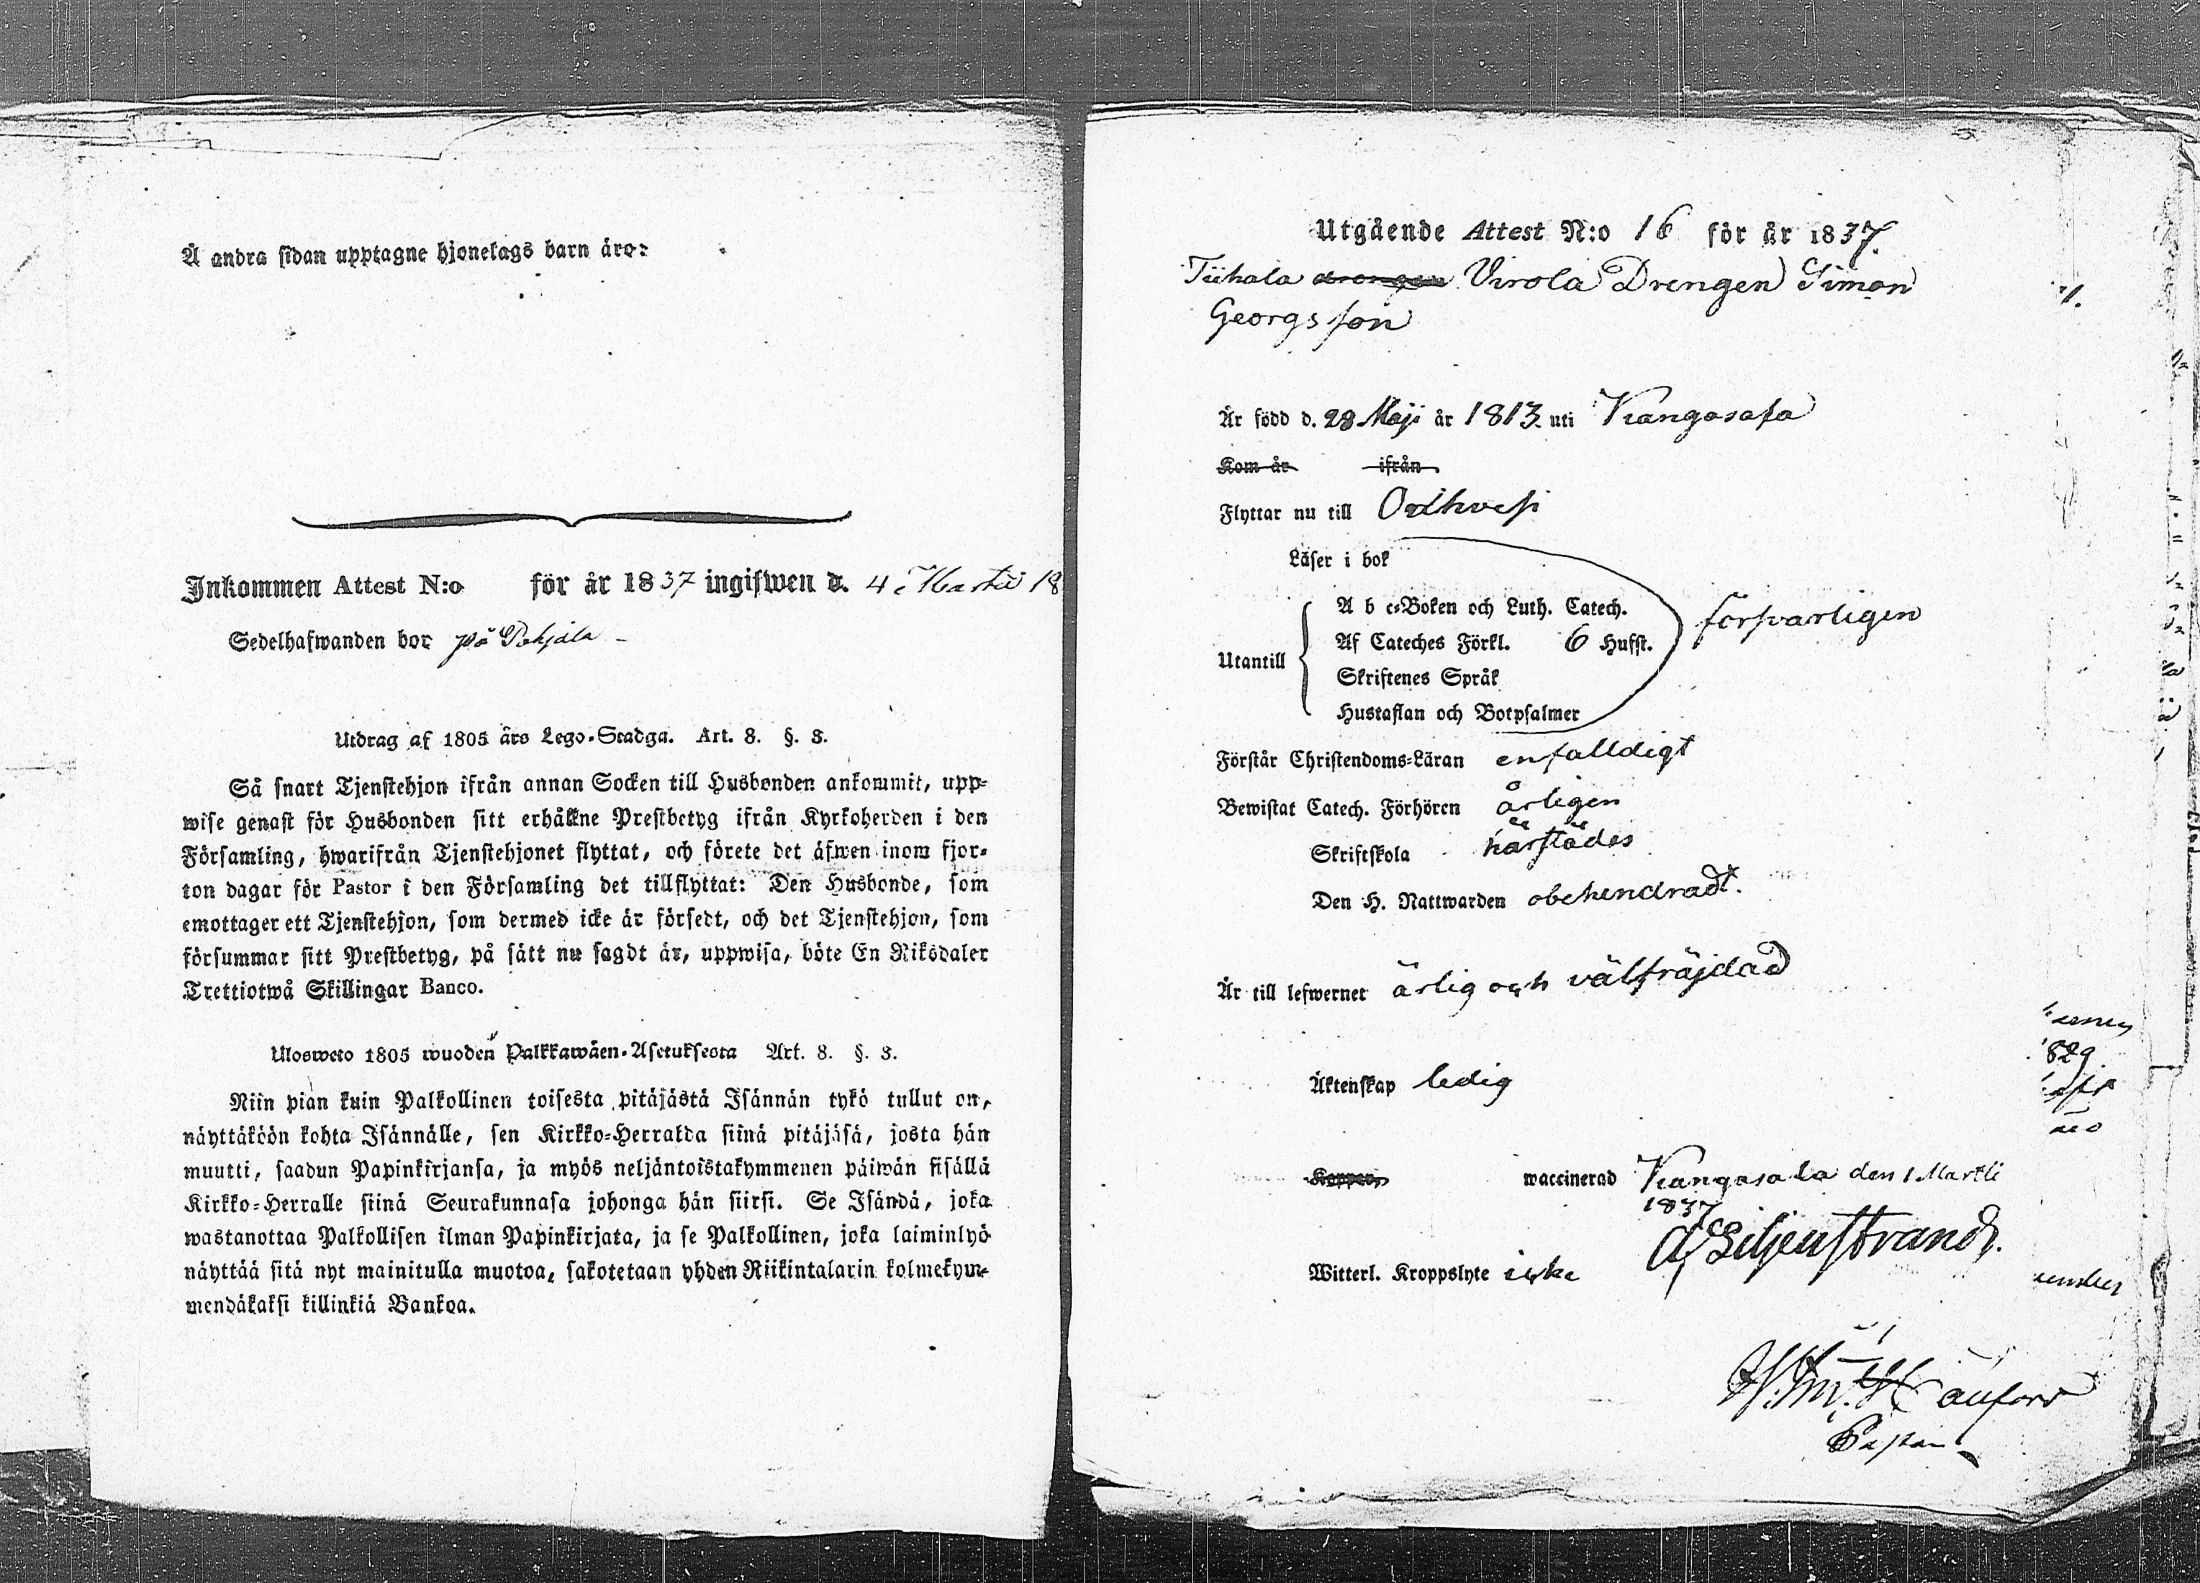 Å andra sidan upptagne hjonelags barn äro:
Inkommen Attest N:o för år 1837 ingifwen d. 4 Martii 18
Sedelhafwanden bor på Pohjala
Utdrag af 1805 års Lego-Stadga. Art. 8. §. 3.
Så snart Tjenstehjon ifrån annan Socken till Husbonden ankommit, upp-
wise genast för Husbonden sitt erhållne Prestbetyg ifrån Kyrkoherden i den
Församling, hwarifrån Tjenstehjonet flyttat, och förete det äfwen inom fjor-
ton dagar för Pastor i den Församling det tillflyttat: Den Husbonde, som
emottager ett Tjenstehjon, som dermed icke är försedt, och det Tjenstehjon, som
försummar sitt Prestbetyg, på sätt nu sagdt är, uppwisa, böte En Riksdaler
Trettiotwå Skillingar Banco.
Ulosweto 1805 wuoden Palkkawäen-Asetuksesta Art. 8. §. 3.
Niin pian kuin Palkollinen toisesta pitäjästä Isännän tykö tullut on,
näyttäköön kohta Isännälle, sen Kirkko-Herralda siinä pitäjäsä, josta hän
muutti, saadun Papinkirjansa, ja myös neljäntoistakymmenen päiwän sisällä
Kirkko-Herralle siinä Seurakunnasa johonga hän siirsi. Se Isändä, joka
wastanottaa Palkollisen ilman Papinkirjata, ja se Palkollinen, joka laiminlyö
näyttää sitä nyt mainitulla muotoa, sakotetaan yhden Riikintalarin kolmekym-
mendäkaksi killinkiä Bankoa.
Utgående Attest N:o 16 för år 1837.
Tiihala drengen Virola Drengen Simon
Georgsson
Är född d. 28 Maji år 1813 uti Kangasala
Kom år ifrån
Flyttar nu till Orihvesi
Läser i bok
A b c-Boken och Luth. Catech.
Af Cateches Förkl. 6 Hufst. försvarligen
Utantill
Skriftenes Språk
Hustaflan och Botpsalmer
Förstår Christendoms-Läran enfalldigt
Bewistat Catech. Förhören årligen
Skriftskola härstädes
Den H. Nattwarden obehindradt.
Är till lefwernet ärlig och välfräjdad
Äktenskap ledig
Koppor, waccinerad Kangasala den 1 Martii
1837
A Liljenstrand.
Witterl. Kroppslyte icke
829
Pastor